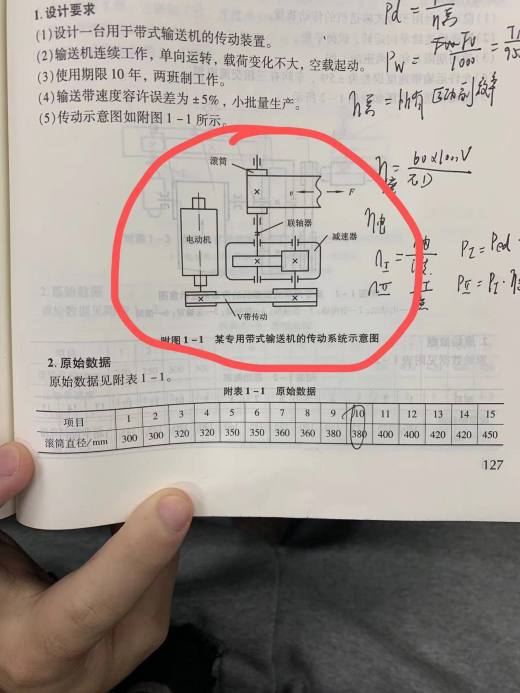 1.设计要求
(1)设计一台用于带式输送机的传动装置。
(2)输送机连续工作，单向运转，载荷变化不大，空载起动。
(3)使用期限10年，两班制工作。
(4)输送带速度容许误差为±5%，小批量生产。
(5)传动示意图如附图1-1所示。
Pd = 
η总
Pw = Fw·Vw/1000 =
η总 = 所有
滚筒
v F
联轴器
电动机
减速器
V带传动
n = 60×1000V/πD
n电
nⅠ =
PⅠ = Ped
nⅡ
PⅡ = PⅠ·
附图1-1 某专用带式输送机的传动系统示意图
2.原始数据
原始数据见附表1-1。
附表1-1 原始数据
项目 1 2 3 4 5 6 7 8 9 10 11 12 13 14 15
滚筒直径/mm 300 300 320 320 350 350 360 360 380 380 400 400 420 420 450
127